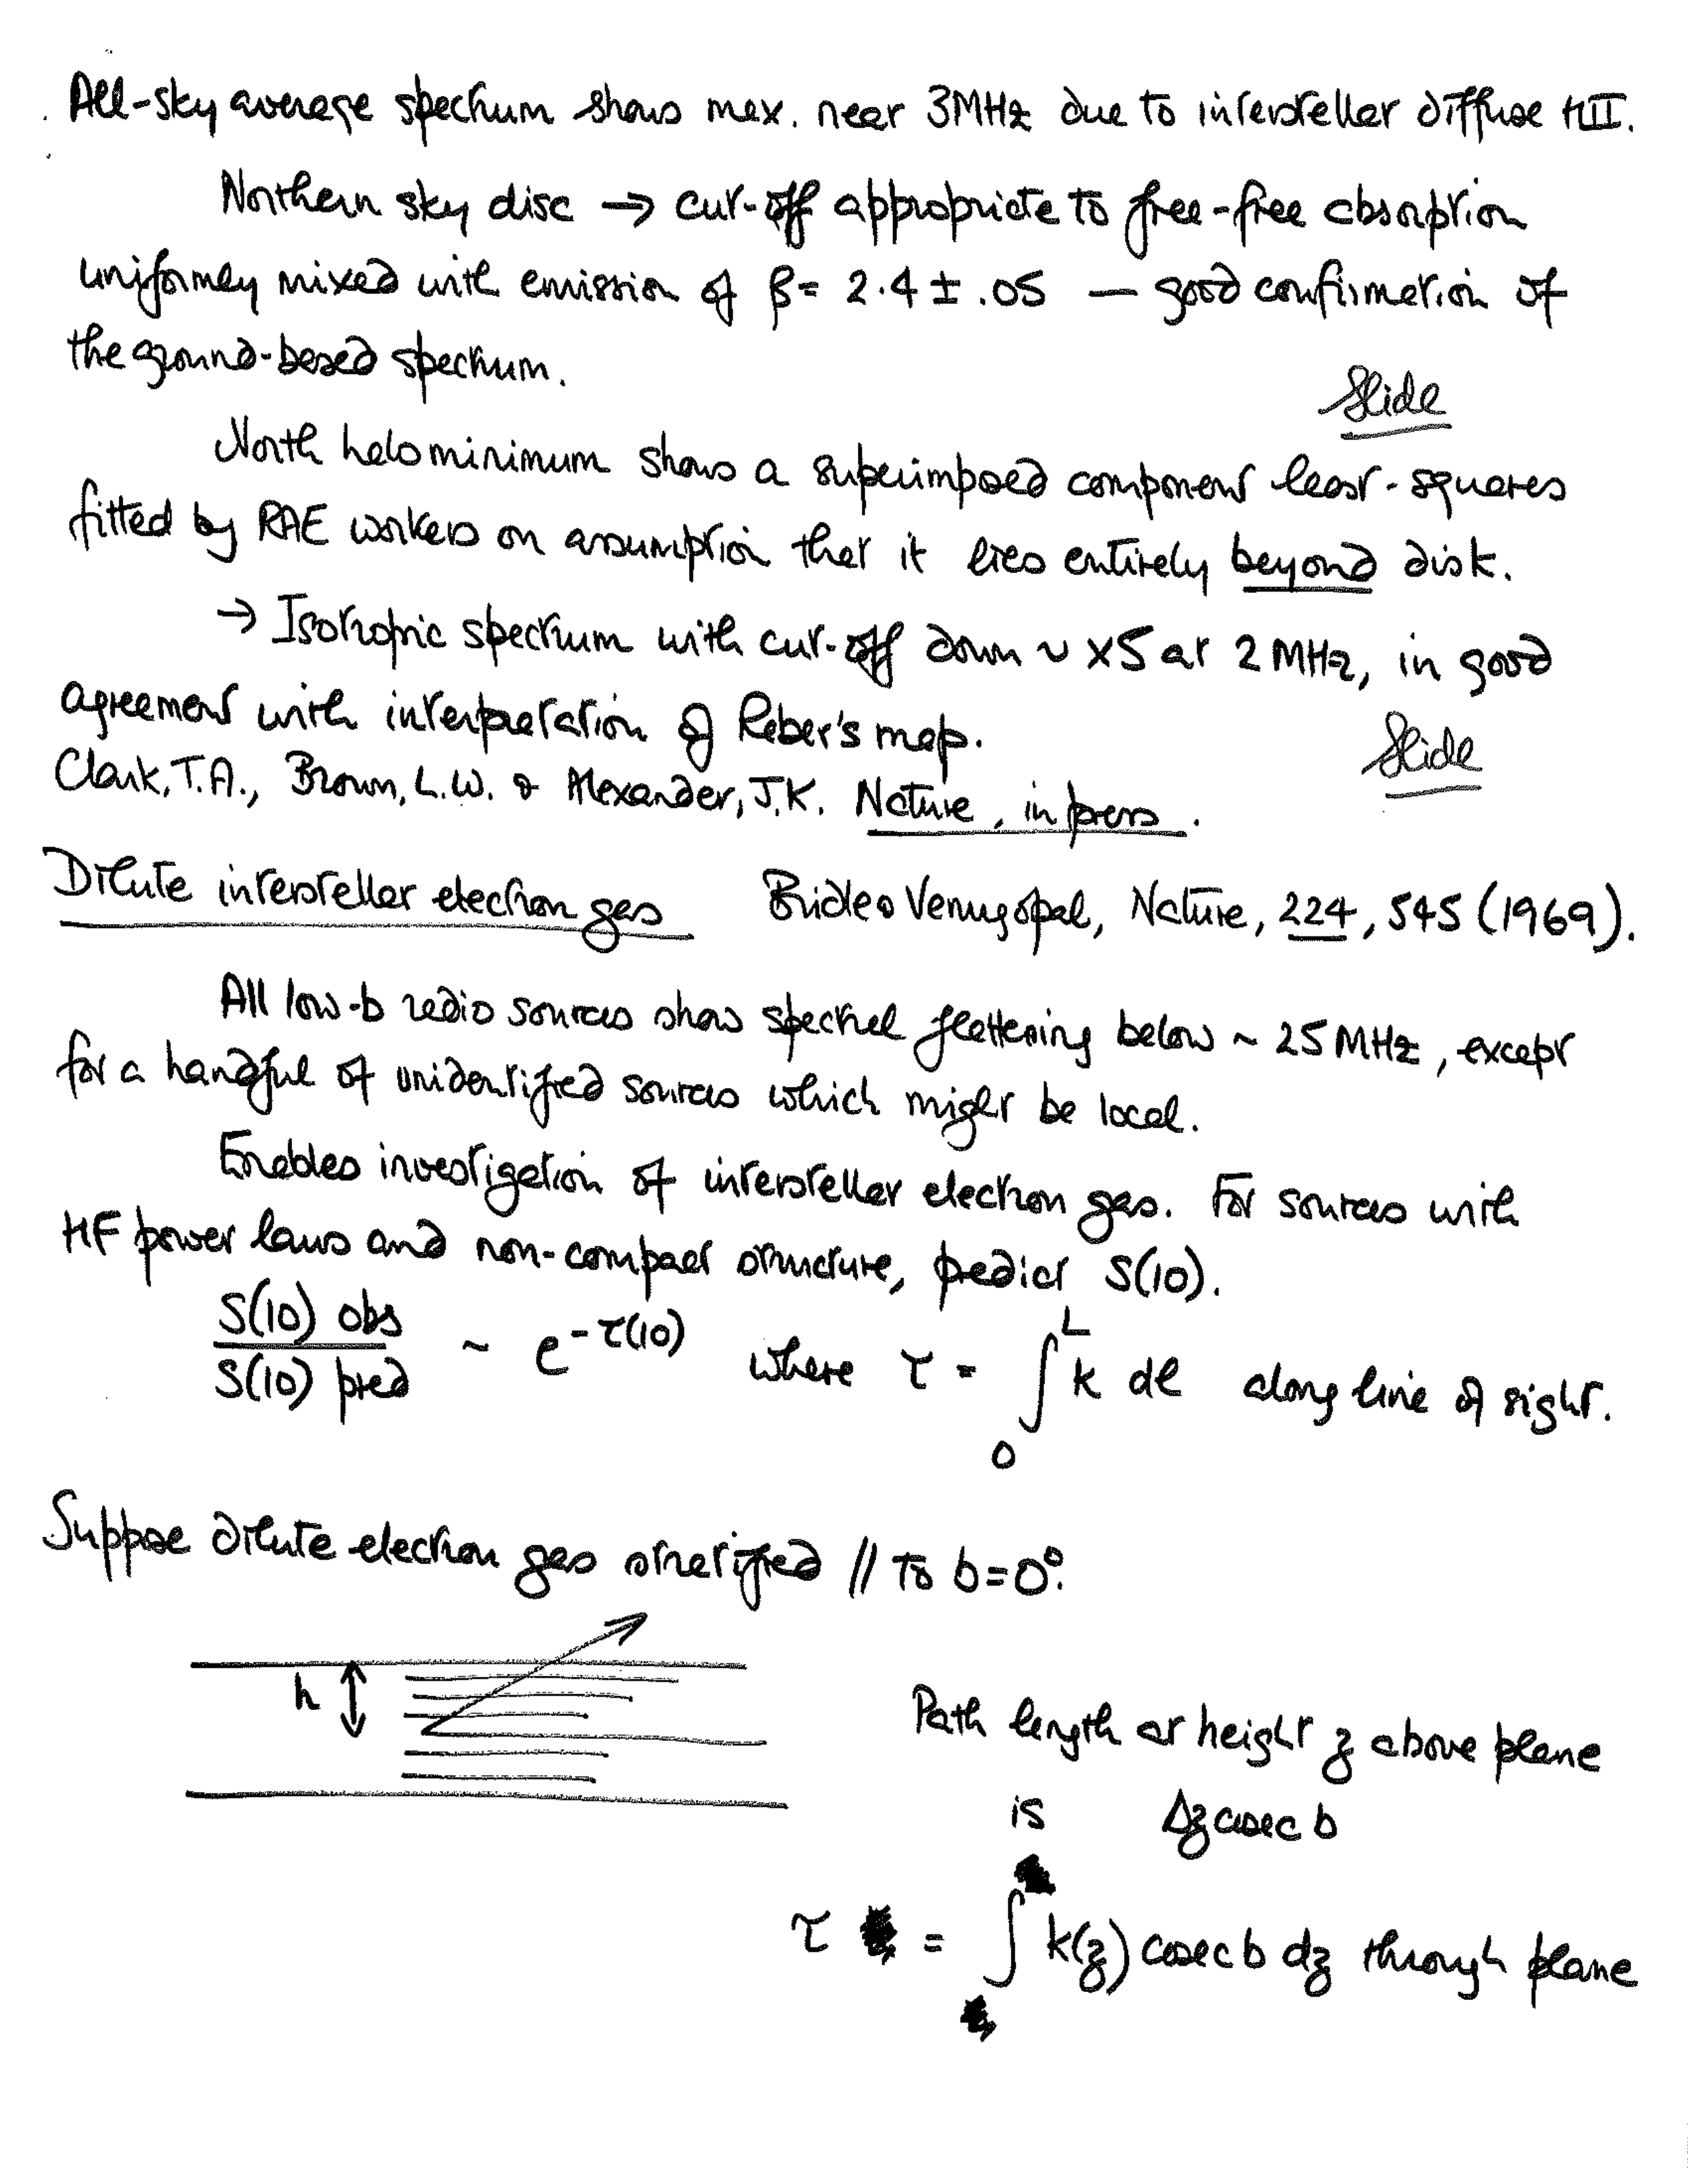 All-sky average spectrum shows max. near 3MHz due to interstellar diffuse HII.
Northern sky disc → cut-off appropriate to free-free absorption
uniformly mixed with emission of β = 2.4 ± .05 — good confirmation of
the ground-based spectrum.
Slide
North halo minimum shows a superimposed component least-squares
fitted by RAE workers on assumption that it lies entirely beyond disk.
→ Isotropic spectrum with cut-off down ~ x5 at 2 MHz, in good
agreement with interpretation of Reber's map.
Slide
Clark, T.A., Brown, L.W. & Alexander, J.K. Nature, in press.
Dilute interstellar electron gas Bridle & Venugopal, Nature, 224, 545 (1969).
All low-b radio sources show spectral flattening below ~ 25 MHz, except
for a handful of unidentified sources which might be local.
Enables investigation of interstellar electron gas. For sources with
HF power laws and non-compact structure, predict S(10).
S(10) obs / S(10) pred ~ e^-τ(10) where τ = ∫₀ᴸ k dl along line of sight.
Suppose dilute electron gas stratified // to b=0°.
h
Path length at height z above plane
is Δz cosec b
τ = ∫ k(z) cosec b dz through plane